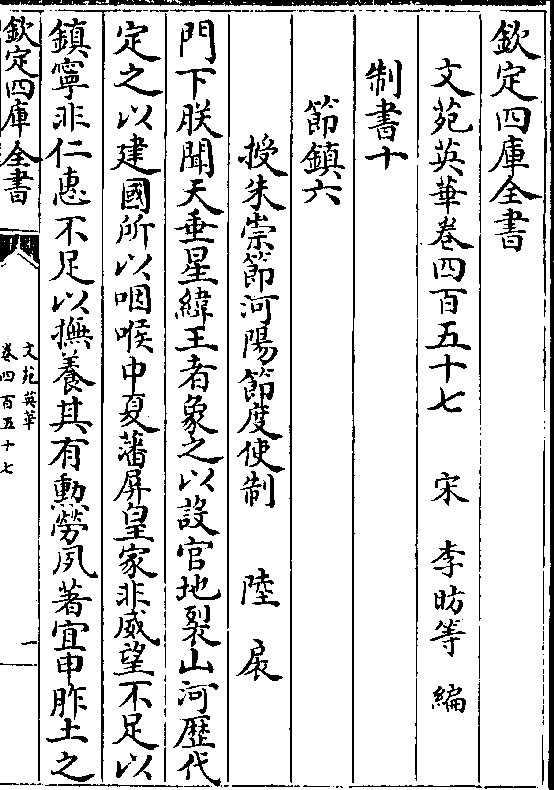 欽定四庫全書
文苑英華卷四百五十七 宋 李昉等 編
制書十
節鎮六
授朱崇節河陽節度使制 陸扆
門下朕聞天垂星緯王者象之以設官地裂山河歷代
定之以建國所以咽喉中夏藩屏皇家非威望不足以
鎮寧非仁惠不足以撫養其有勲勞夙著宜申胙土之
欽定四庫全書
文苑英華
卷四百五十七
一